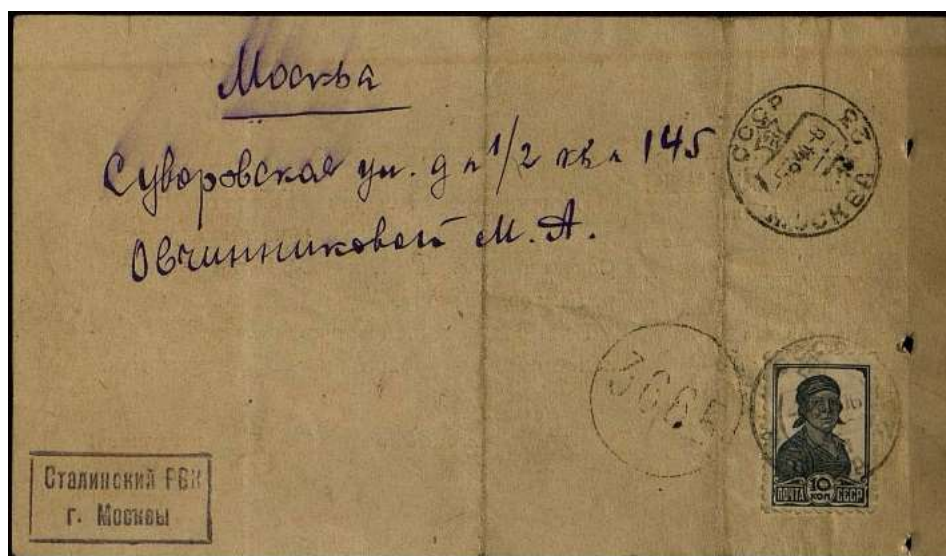 Москва
Суворовская ул. д 1/2 кв 145
Овчинниковой М. А.
СССР
МОСКВА
23
Сталинский РВК
г. Москвы
ПОЧТА 10 КОП СССР